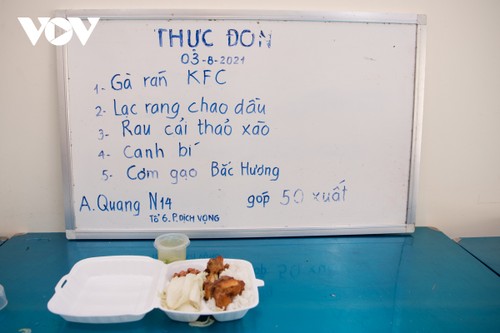 VOV
THỰC ĐƠN
03-8-2021
1- Gà rán KFC
2- Lạc rang chao dầu
3- Rau cải thảo xào
4- Canh bí
5- Cơm gạo Bắc Hương
A. Quang N14 góp 50 xuất
Tổ 6. P. DỊCH VỌNG